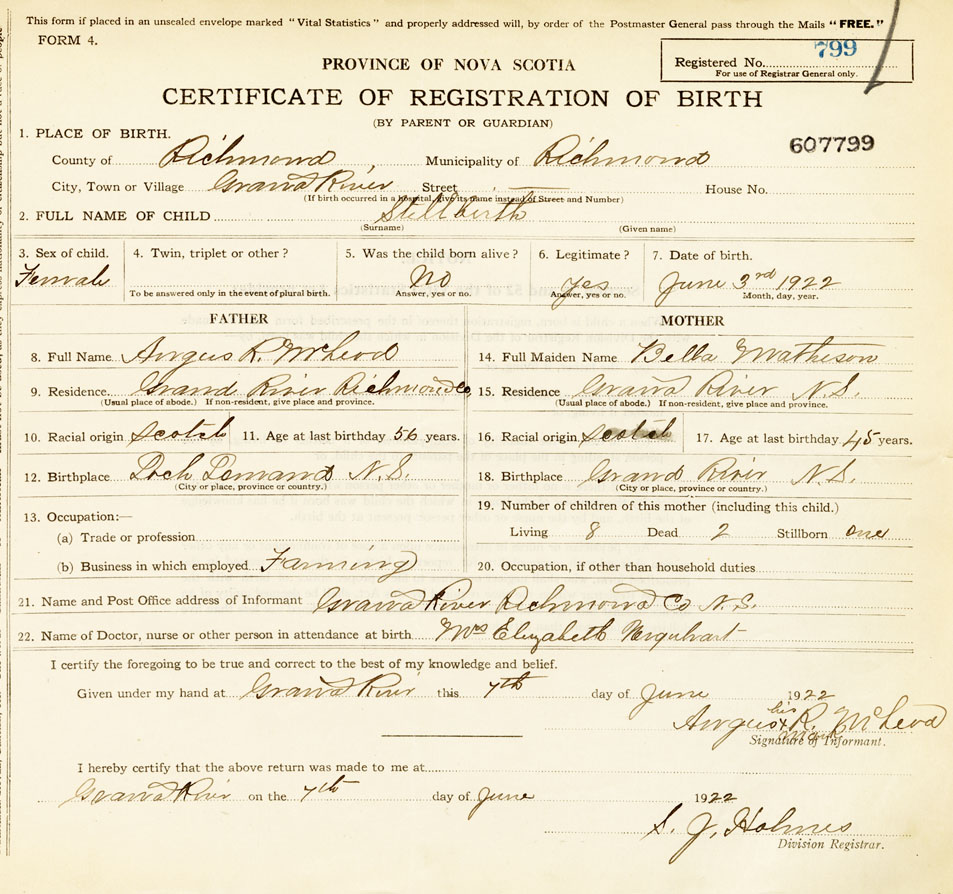 This form if placed in an unsealed envelope marked "Vital Statistics" and properly addressed will, by order of the Postmaster General pass through the Mails "FREE."
FORM 4.
799
Registered No.
For use of Registrar General only.
PROVINCE OF NOVA SCOTIA
CERTIFICATE OF REGISTRATION OF BIRTH
(BY PARENT OR GUARDIAN)
607799
1. PLACE OF BIRTH.
County of Richmond, Municipality of Richmond
City, Town or Village Grand River Street — House No.
(If birth occurred in a hospital, give its name instead of Street and Number)
2. FULL NAME OF CHILD Stillbirth
(Surname) (Given name)
3. Sex of child. 4. Twin, triplet or other? 5. Was the child born alive? 6. Legitimate? 7. Date of birth.
Female No Yes June 3rd 1922
To be answered only in the event of plural birth. Answer, yes or no. Answer, yes or no. Month, day, year.
FATHER
8. Full Name Angus R. McLeod
9. Residence Grand River Richmond Co
(Usual place of abode.) If non-resident, give place and province.
10. Racial origin Scotch 11. Age at last birthday 56 years.
12. Birthplace Loch Lomand N.S.
(City or place, province or country.)
13. Occupation:—
(a) Trade or profession
(b) Business in which employed Farming
MOTHER
14. Full Maiden Name Bella Matheson
15. Residence Grand River N.S.
(Usual place of abode.) If non-resident, give place and province.
16. Racial origin Scotch 17. Age at last birthday 45 years.
18. Birthplace Grand River N.S.
(City or place, province or country.)
19. Number of children of this mother (including this child.)
Living 8 Dead 2 Stillborn one
20. Occupation, if other than household duties
21. Name and Post Office address of Informant Grand River Richmond Co N.S.
22. Name of Doctor, nurse or other person in attendance at birth Mrs Elizabeth Urquhart
I certify the foregoing to be true and correct to the best of my knowledge and belief.
Given under my hand at Grand River this 7th day of June 1922
his
Angus x R. McLeod
mark
Signature of Informant.
I hereby certify that the above return was made to me at
Grand River on the 7th day of June 1922
S. J. Holmes
Division Registrar.